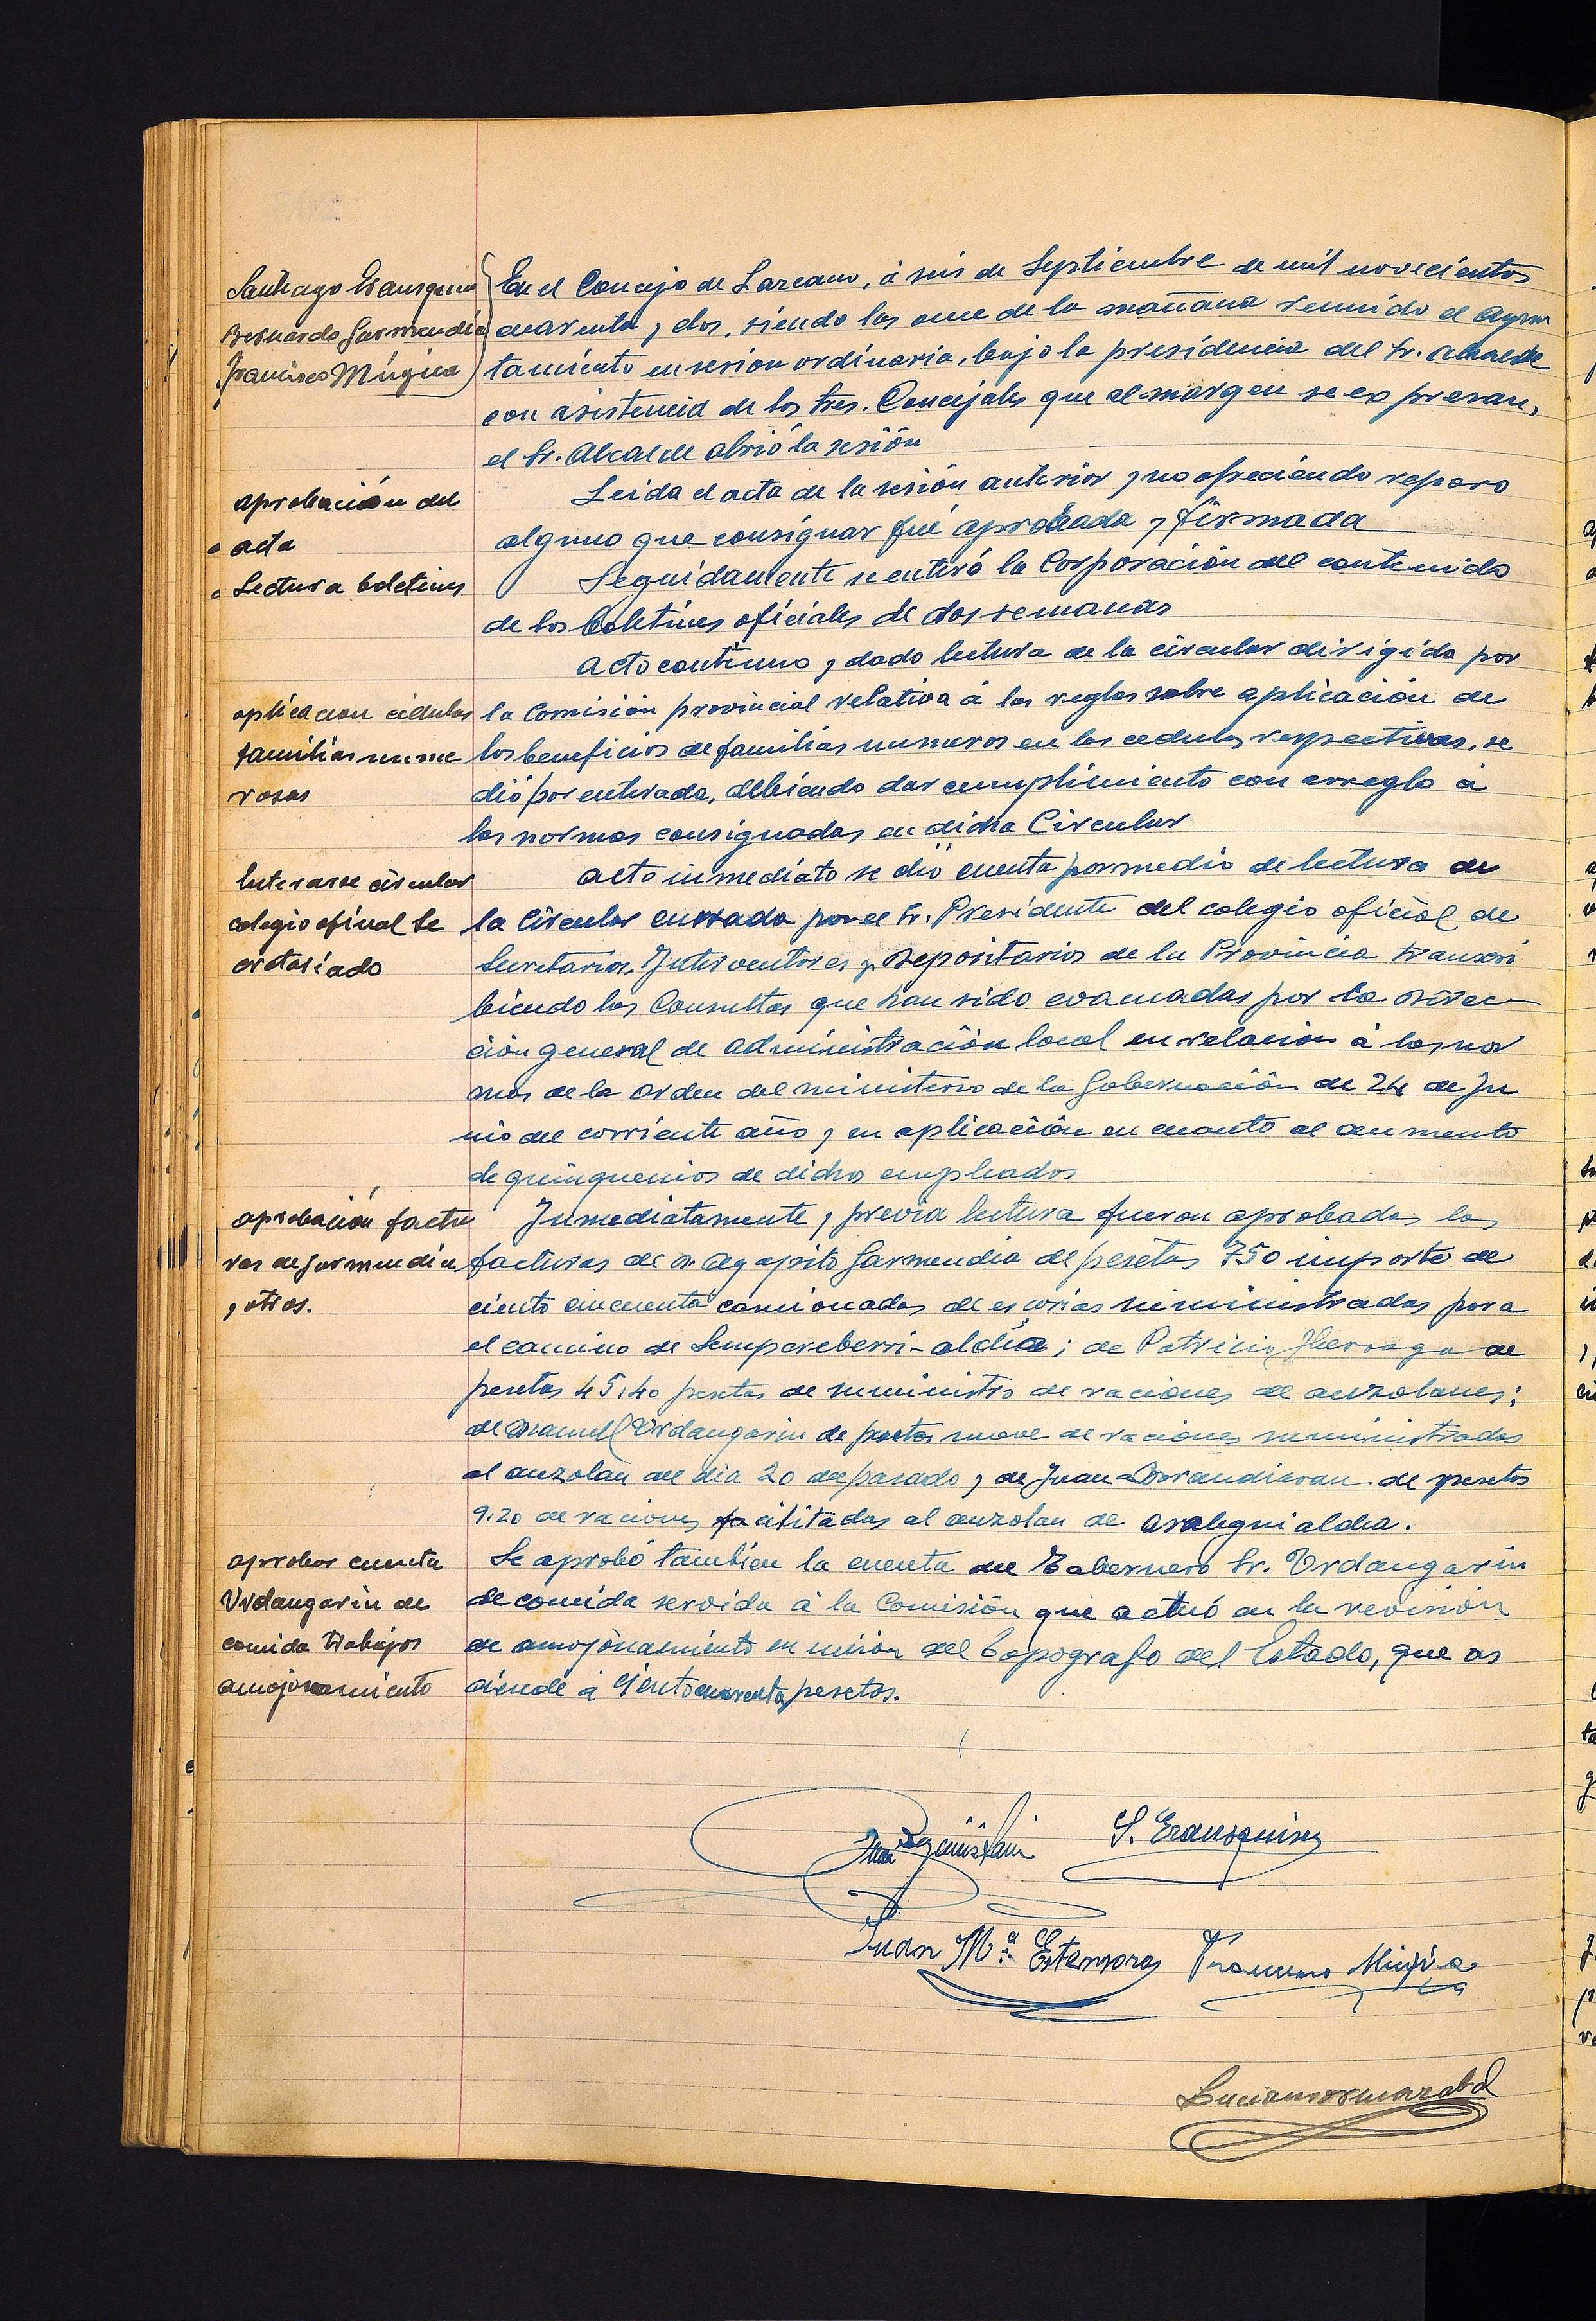 Santiago Erausquin
Bernardo Garmendia
Francisco Múgica
En el Concejo de Lazcano, á seis de Septiembre de mil novecientos
cuarenta y dos, siendo las once de la mañana reunido el Ayun
tamiento en sesion ordinaria, bajo la presidencia del Sr. Alcalde
con asistencia de los Sres. Concejales que al margen se expresan,
el Sr. Alcalde abrió la sesión
aprobación del
acta
Leida el acta de la sesión anterior y no ofreciendo reparo
alguno que consignar fué aprobada y firmada
Lectura boletines
Seguidamente se enteró la Corporación del contenido
de los boletines oficiales de dos semanas
aplicacion cédulas
familias nume
rosas
Acto continuo y dado lectura de la circular dirigida por
la Comisión provincial relativa á las reglas sobre aplicación de
los beneficios de familias numeros en las cedulas respectivas, se
dió por enterada, debiendo dar cumplimiento con arreglo á
las normas consignadas en dicha Circular
Enterarse circular
colegio oficial Se
cretariado
Acto inmediato se dió cuenta por medio de lectura de
la Circular cursada por el Sr. Presidente del colegio oficial de
Secretarios, Interventores y Depositarios de la Provincia transcri
biendo las Consultas que han sido evacuadas por la Direc
ción general de Administración local en relacion á las nor
mas de la orden del ministerio de la Gobernación de 24 de Ju
nio del corriente año y en aplicación en cuanto al aumento
de quinquenios de dichos empleados
aprobación factu
ras de Garmendia
y otros.
Inmediatamente y previa lectura fueron aprobadas las
facturas de D. Agapito Garmendia de pesetas 750 importe de
ciento cincuenta camionadas de escorias suministradas para
el camino de Sempereberri-aldea; de Patricio de
pesetas 45,40 pesetas de suministro de raciones de auzolanes;
de Manuel Urdangarin de pesetas nueve de raciones suministradas
al auzolan del dia 20 del pasado y de Juan Barandiaran de pesetas
9.20 de raciones facilitadas al auzolan de aralegui aldea.
aprobar cuenta
Urdangarin de
comida trabajos
amojonamiento
Se aprobó tambien la cuenta del Tabernero Sr. Urdangarin
de comida servida á la Comisión que actuó en la revisión
de amojonamiento en unión del Topografo del Estado, que as
ciende á ciento cuarenta pesetas.
S. Erausquin
Juan Mª Estensoro
Francisco Múgica
Luciano